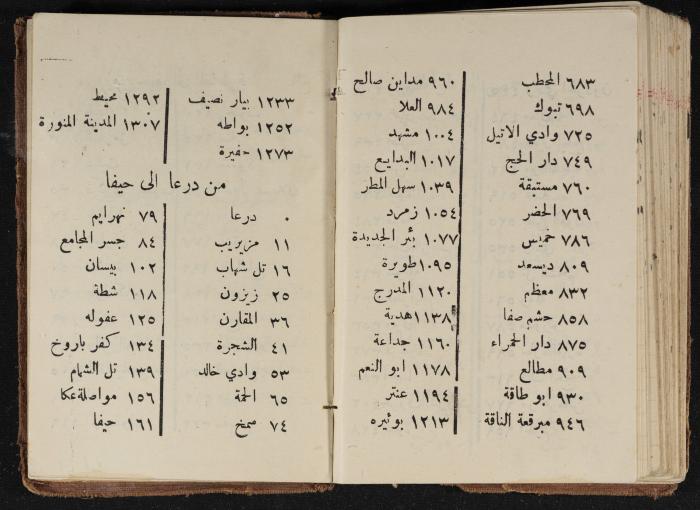 ٦٨٣ المحطب
٦٩٨ تبوك
٧٢٥ وادي الاتيل
٧٤٩ دار الحج
٧٦٠ مستبقة
٧٦٩ الخضر
٧٨٦ خميس
٨٠٩ ديسعد
٨٣٢ معظم
٨٥٨ حشم صفا
٨٧٥ دار الحمراء
٩٠٩ مطالع
٩٣٠ ابو طاقة
٩٤٦ مبرقعة الناقة
٩٦٠ مداين صالح
٩٨٤ العلا
١٠٠٤ مشهد
١٠١٧ البدايع
١٠٣٩ سهل المطر
١٠٥٤ زمرد
١٠٧٧ بئر الجديدة
١٠٩٥ طويرة
١١٢٠ المدرج
١١٣٨ هدية
١١٦٠ جداعة
١١٧٨ ابو النعم
١١٩٤ عنتر
١٢١٣ بوئيره
١٢٣٣ بيار نصيف
١٢٥٢ بواطه
١٢٧٣ حفيرة
١٢٩٢ محيط
١٣٠٧ المدينة المنورة
من درعا الى حيفا
٠ درعا
١١ مزيريب
١٦ تل شهاب
٢٥ زيزون
٣٦ المقارن
٤١ الشجرة
٥٣ وادي خالد
٦٥ الحمة
٧٤ صمخ
٧٩ نهرايم
٨٤ جسر المجامع
١٠٢ بيسان
١١٨ شطة
١٢٥ عفوله
١٣٤ كفر باروخ
١٣٩ تل الشمام
١٥٦ مواصلة عكا
١٦١ حيفا